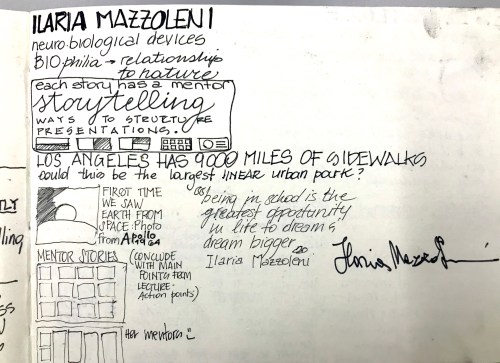 ILARIA MAZZOLENI
neuro.biological devices
BIOphilia → relationship
to nature
each story has a mentor
storytelling
WAYS TO STRUCTURE
PRESENTATIONS.
LOS ANGELES HAS 9000 MILES OF SIDEWALKS
could this be the largest LINEAR urban park?
FIRST TIME
WE SAW
EARTH FROM
SPACE: Photo
from Apollo
"being in school is the
greatest opportunity
in life to dreams,
dream bigger"
Ilaria Mazzoleni
Ilaria Mazzoleni
MENTOR STORIES
(CONCLUDE
WITH MAIN
POINTS FROM
LECTURE-
Action points)
Her mentors